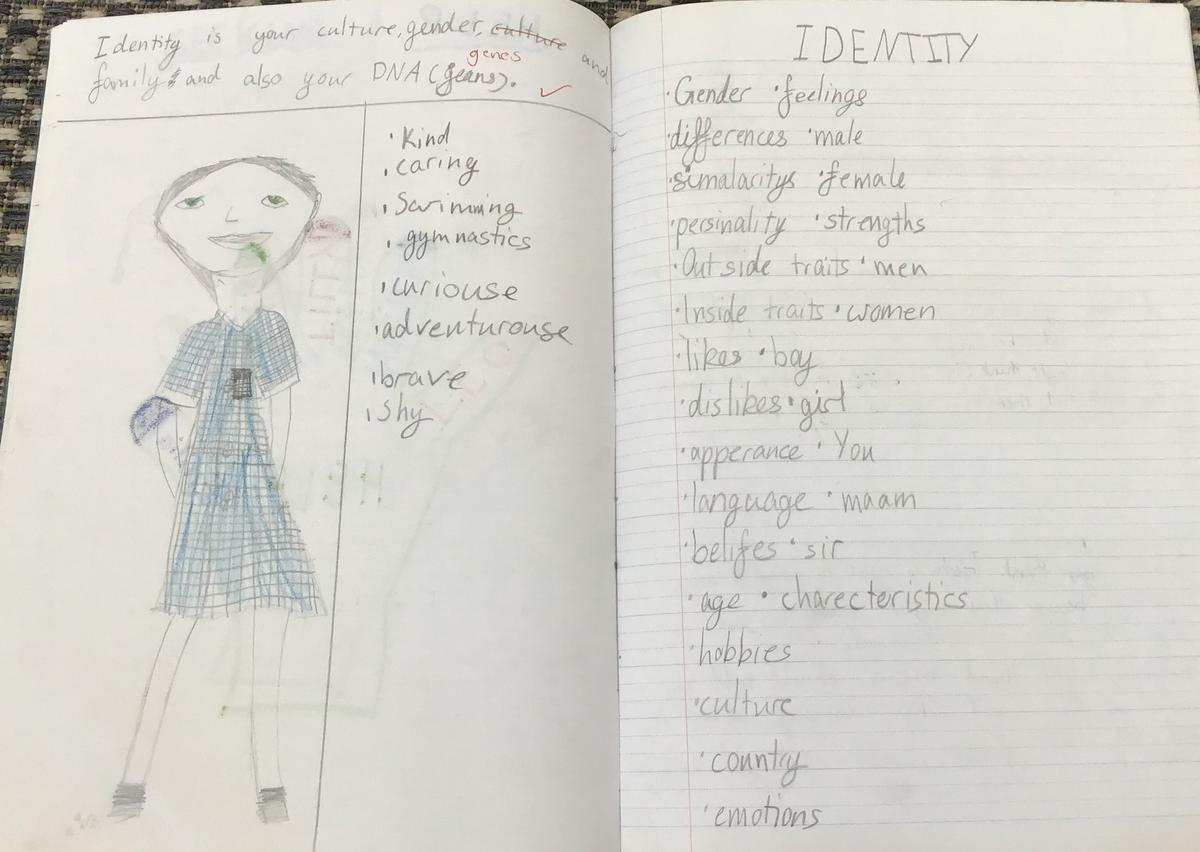 Identity is your culture, gender, culture and
genes
family & and also your DNA (geans).
· Kind
· caring
· Swimming
· gymnastics
· curiouse
· adventurouse
· brave
· Shy
IDENTITY
· Gender · feelings
· differences · male
· simalaritys · female
· persinality · strengths
· Out side traits · men
· Inside traits · women
· likes · boy
· dislikes · girl
· apperance · You
· language · maam
· belifes · sir
· age · charecteristics
· hobbies
· culture
· country
· emotions